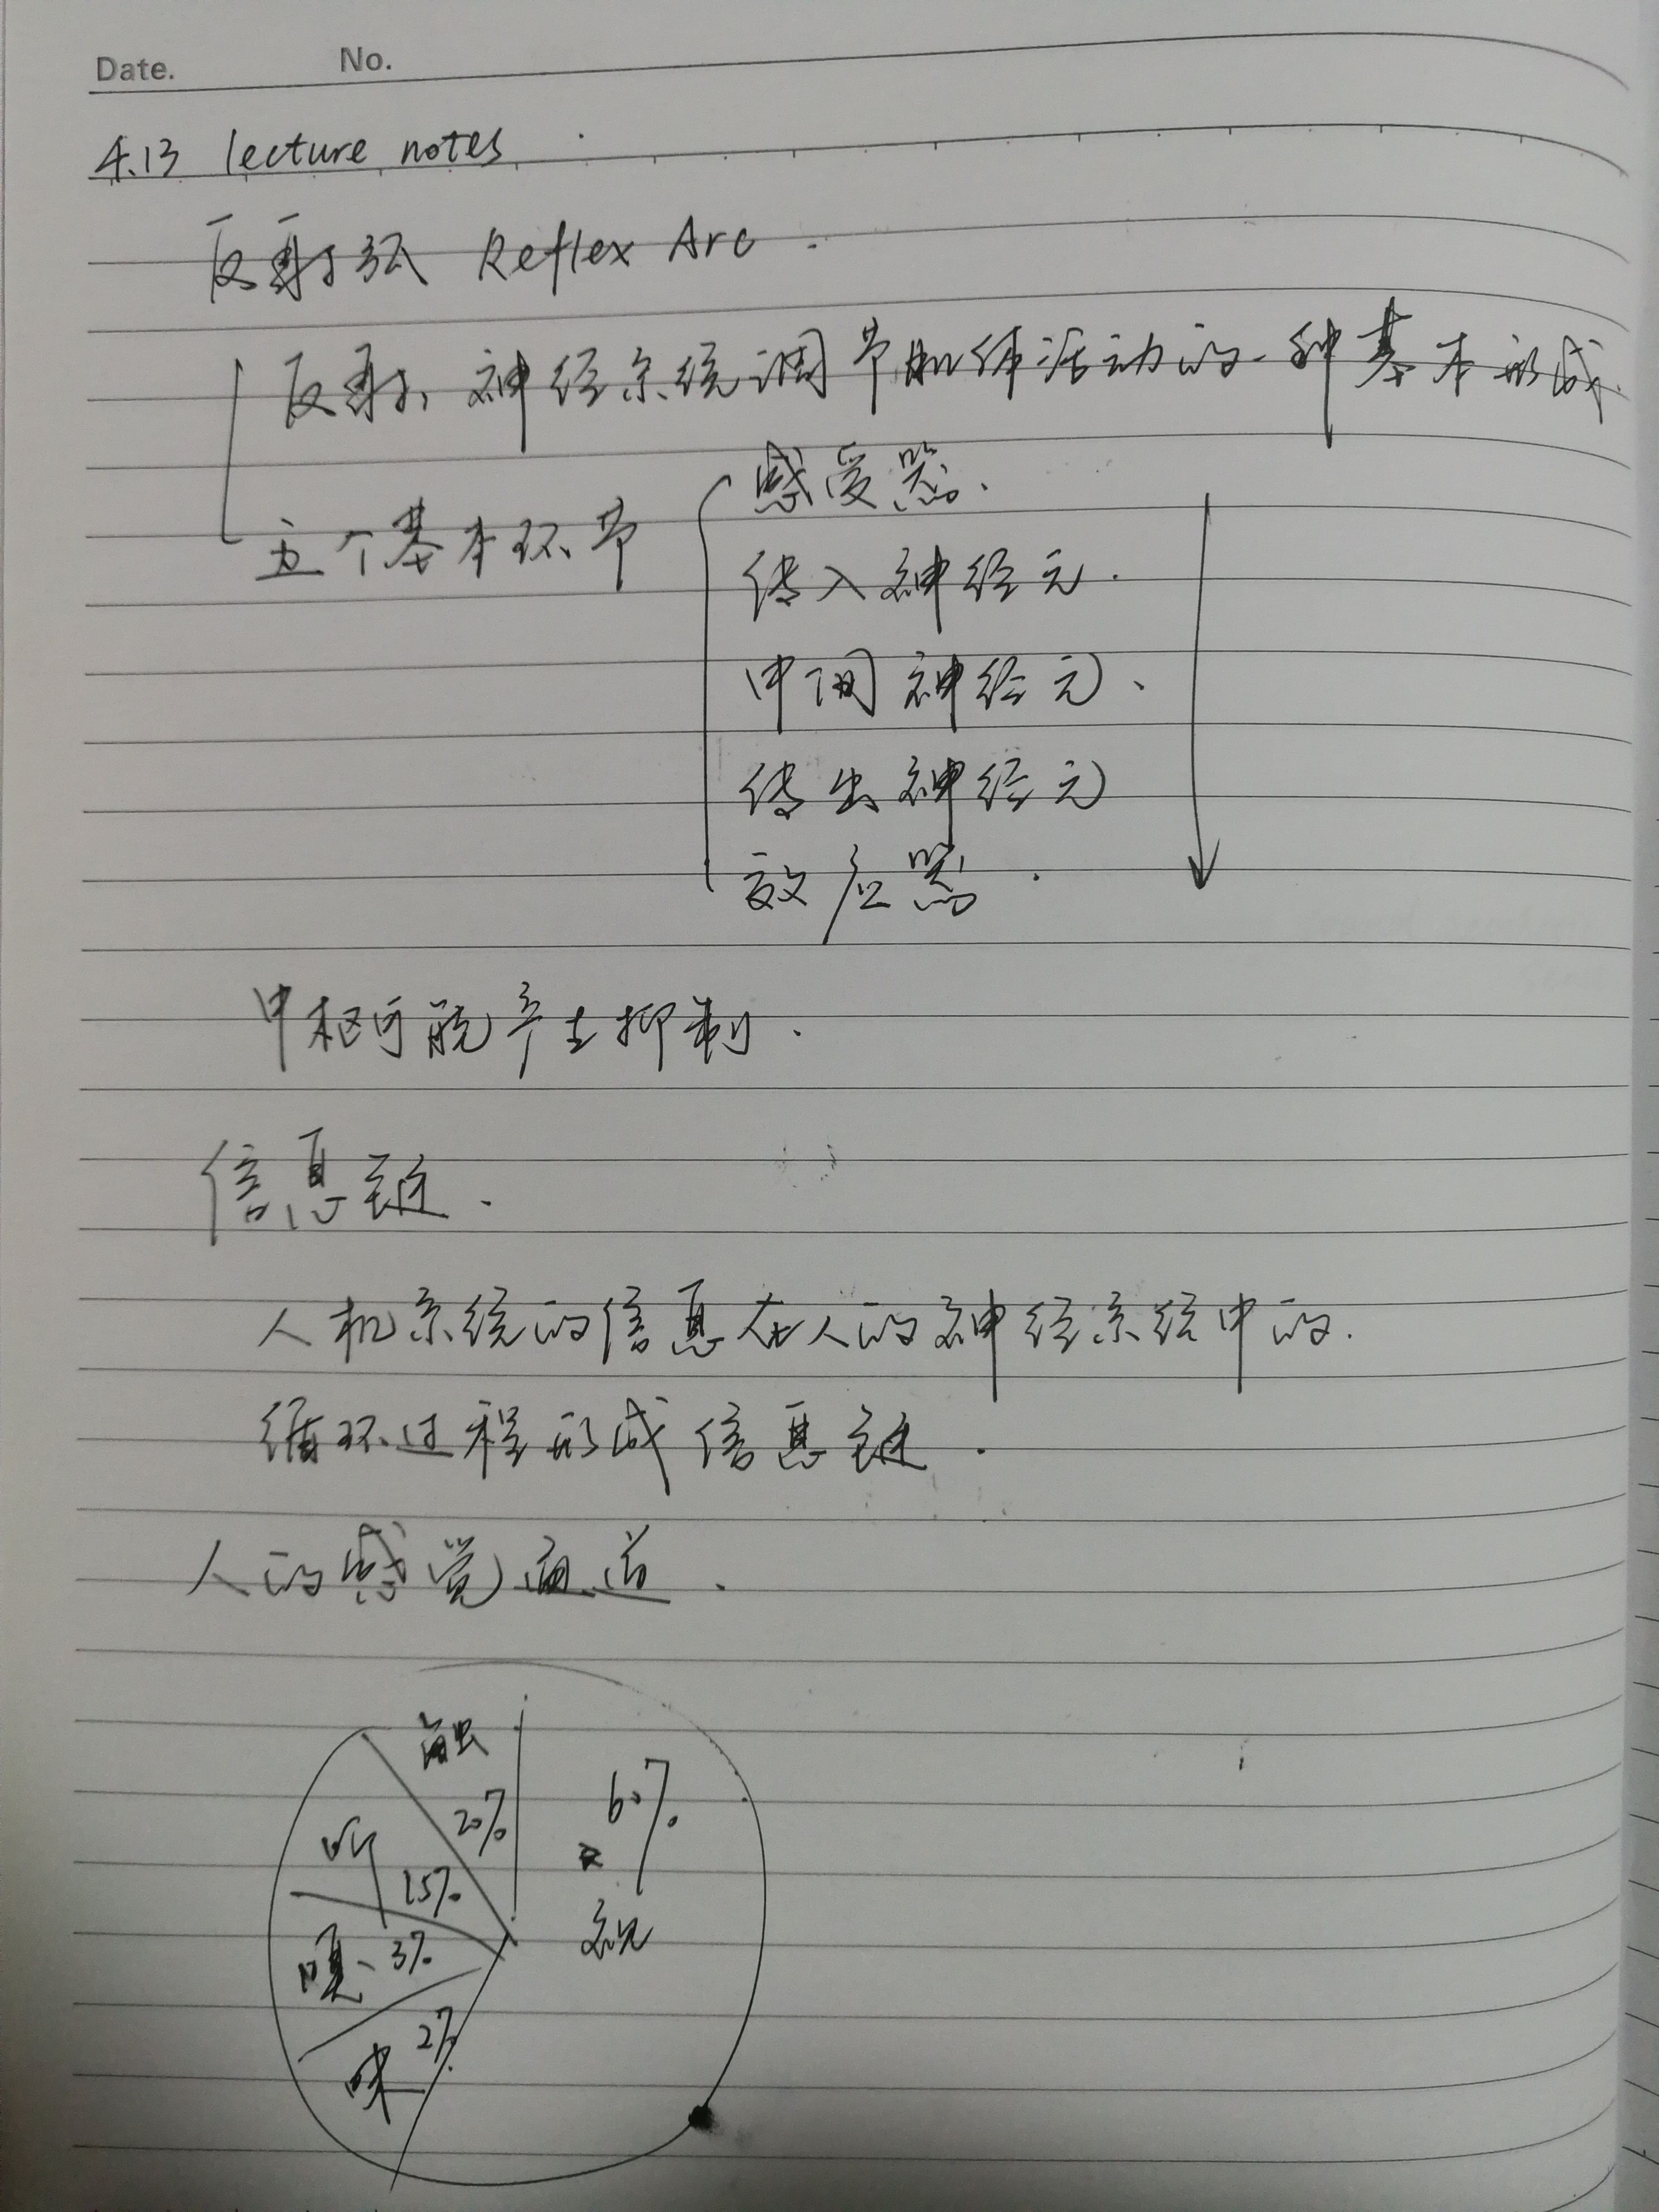 Date. No.
4.13 lecture notes
反射弧 Reflex Arc.
反射, 神经系统调节肌体活动的一种基本形式.
五个基本环节
感受器、
传入神经元.
中间神经元、
传出神经元
效应器.
中枢可能产生抑制.
信息链.
人机系统的信息在人的神经系统中的.
循环过程形成信息链.
人的感觉通道.
触
20%
60%
视
听
15%
嗅、3%
味 2%